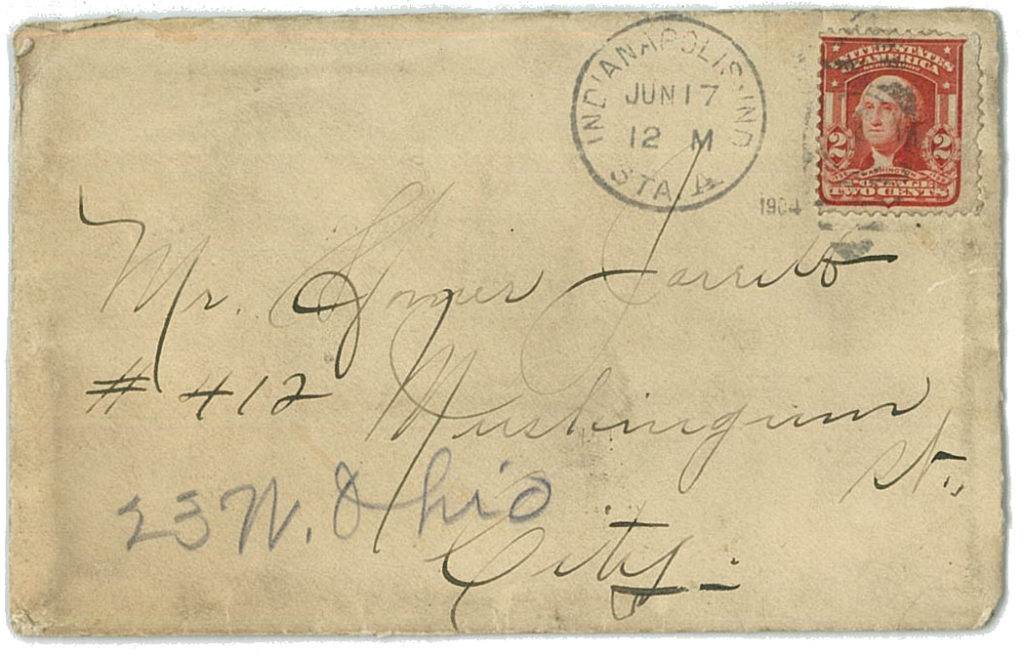 INDIANAPOLIS, IND.
JUN 17
12 M
STA. A
1904
UNITED STATES
OF AMERICA
2 2
WASHINGTON
POSTAGE
TWO CENTS
Mr. Homer Jarrett
# 412 Muskingum
St.,
23 N. Ohio
City.